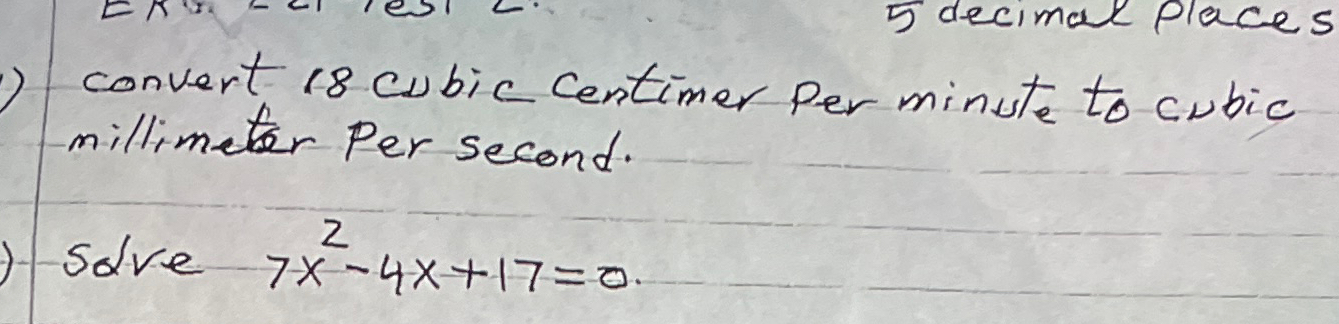 5 decimal places
1) convert 18 cubic centimer per minute to cubic
millimeter per second.
) solve 7x² - 4x + 17 = 0.